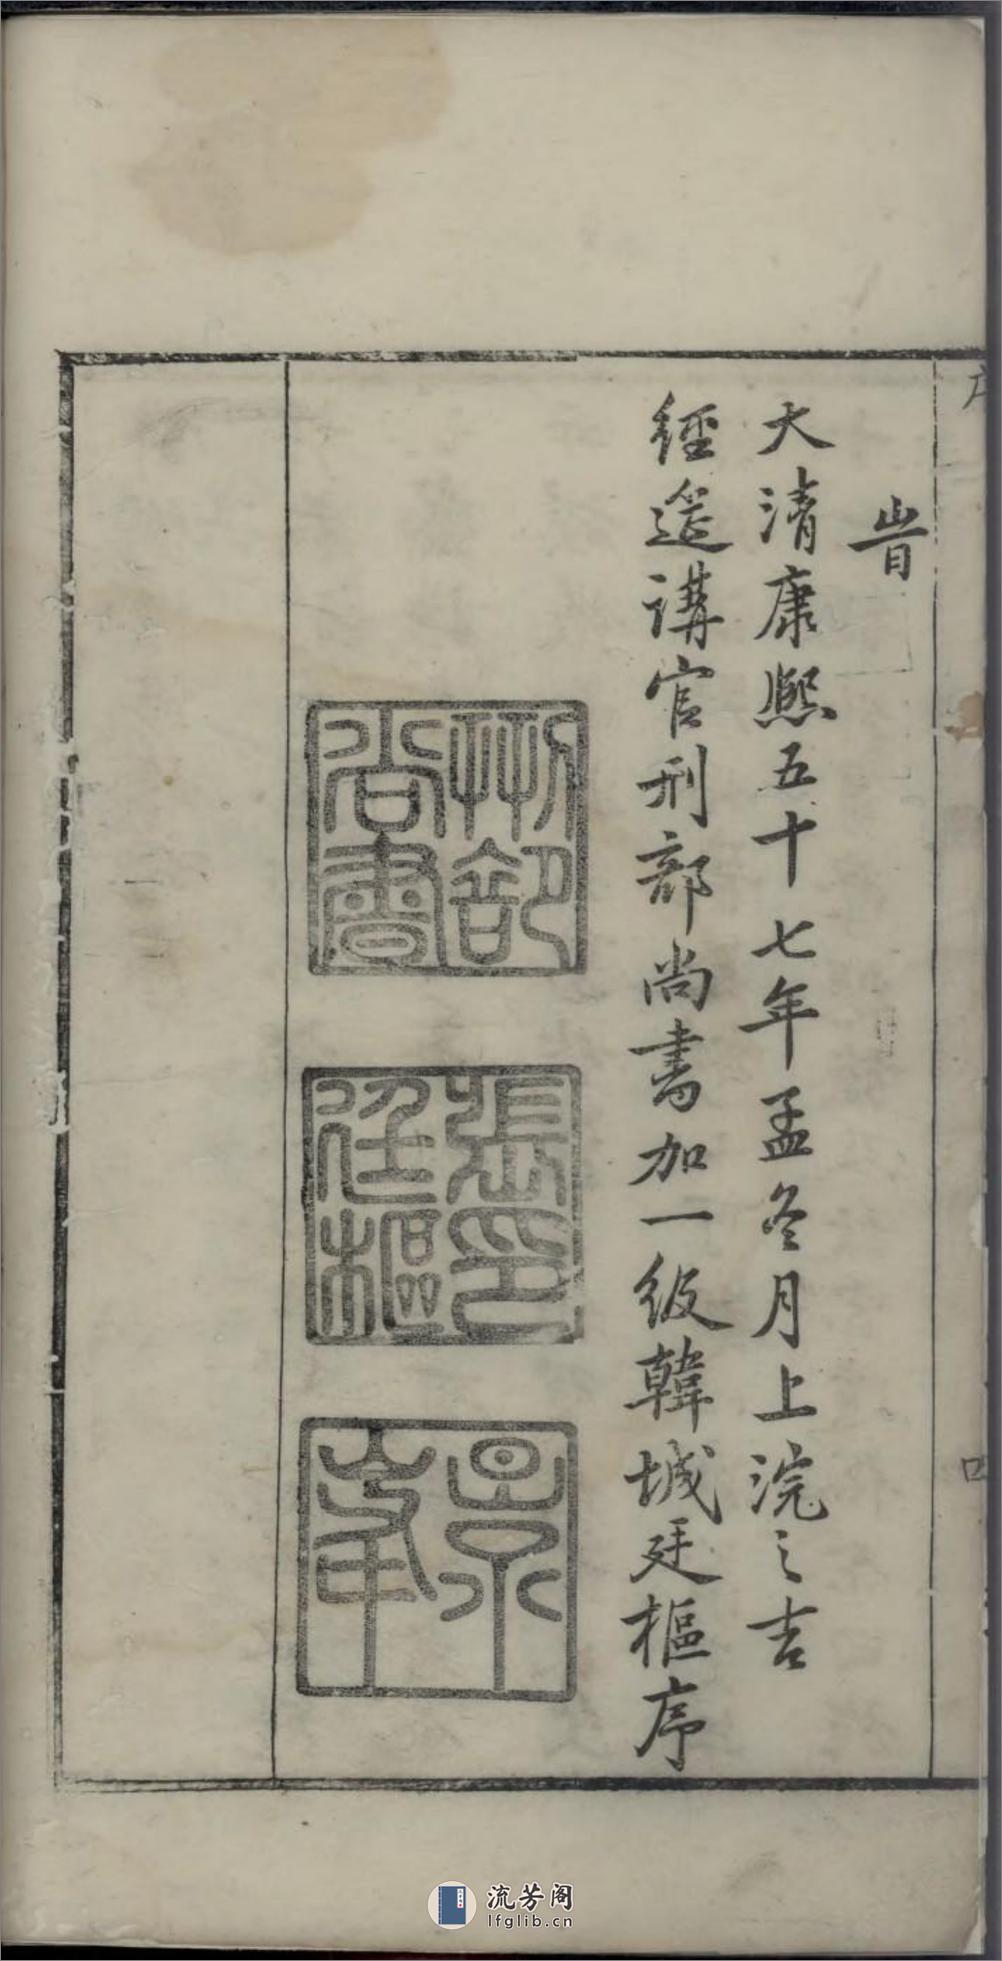 旹
大清康熙五十七年孟冬月上浣之吉
經筵講官刑部尚書加一級韓城廷樞序
刑部尚書
張廷樞印
景峯
四
流芳阁
lfglib.cn